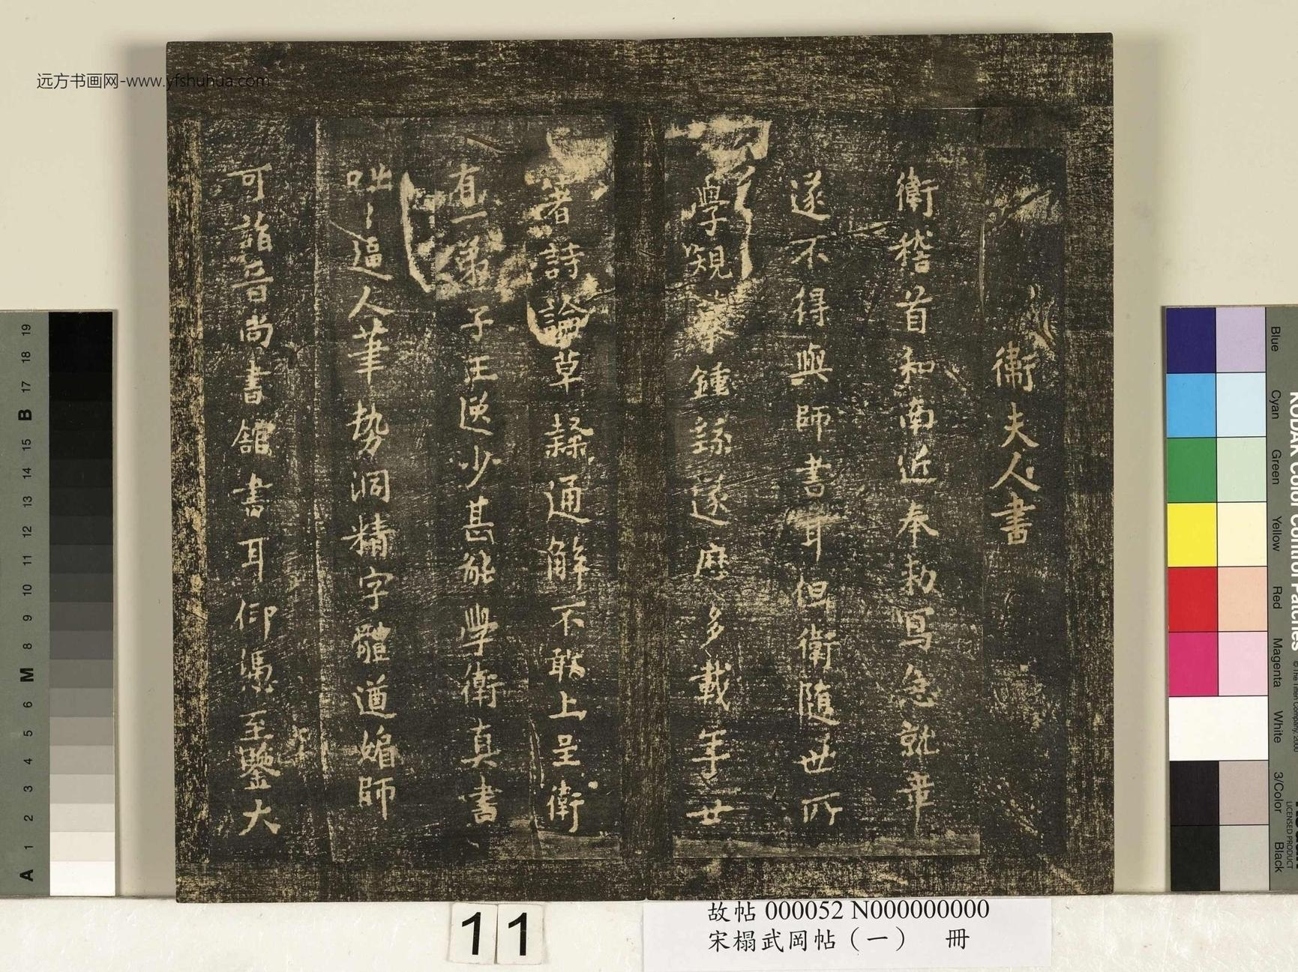 衛夫人書
衛稽首和南近奉勑寫急就章
遂不得與師書耳但衛隨世所
學規摹鍾繇遂歷多載年廿
著詩論草隸通解不敢上呈衛
有一弟子王逸少甚能學衛真書
咄〻逼人筆勢洞精字體遒媚師
可詣晉尚書館書耳仰憑至鑒大
远方书画网-www.yfshuhua.com
11
故帖 000052 N000000000
宋榻武岡帖（一） 冊
KODAK Color Control Patches
Blue
Cyan
Green
Yellow
Red
Magenta
White
3/Color
Black
LICENSED PRODUCT
A 1 2 3 4 5 6 M 8 9 10 11 12 13 14 15 B 17 18 19